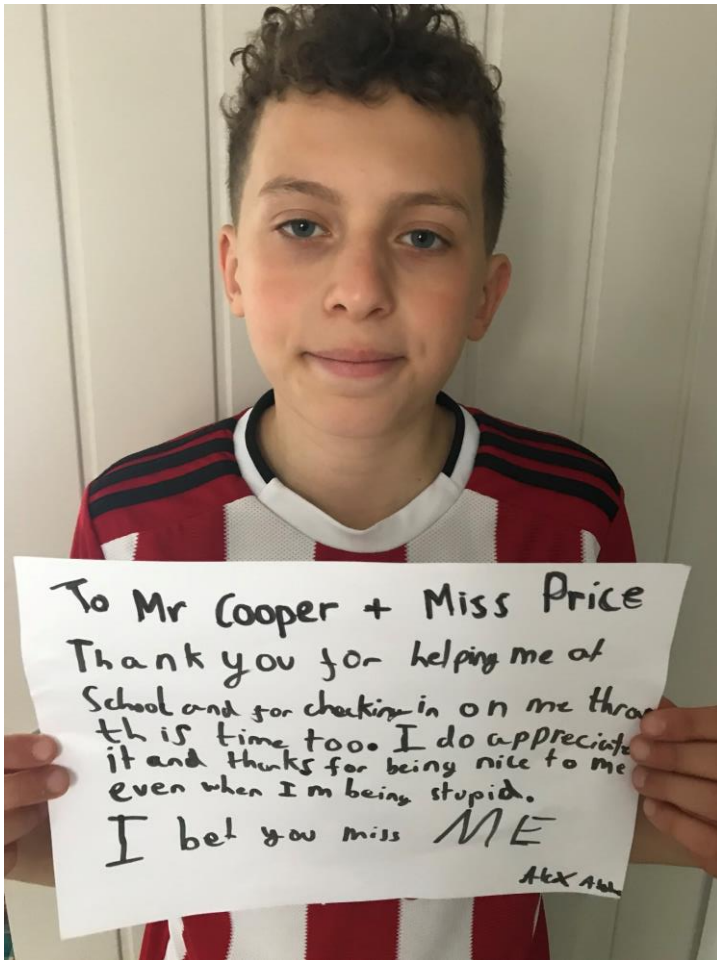 To Mr Cooper + Miss Price
Thank you for helping me at
School and for checking in on me
this time too. I do appreciate
it and thanks for being nice to me
even when I m being stupid.
I bet you miss ME
Alex